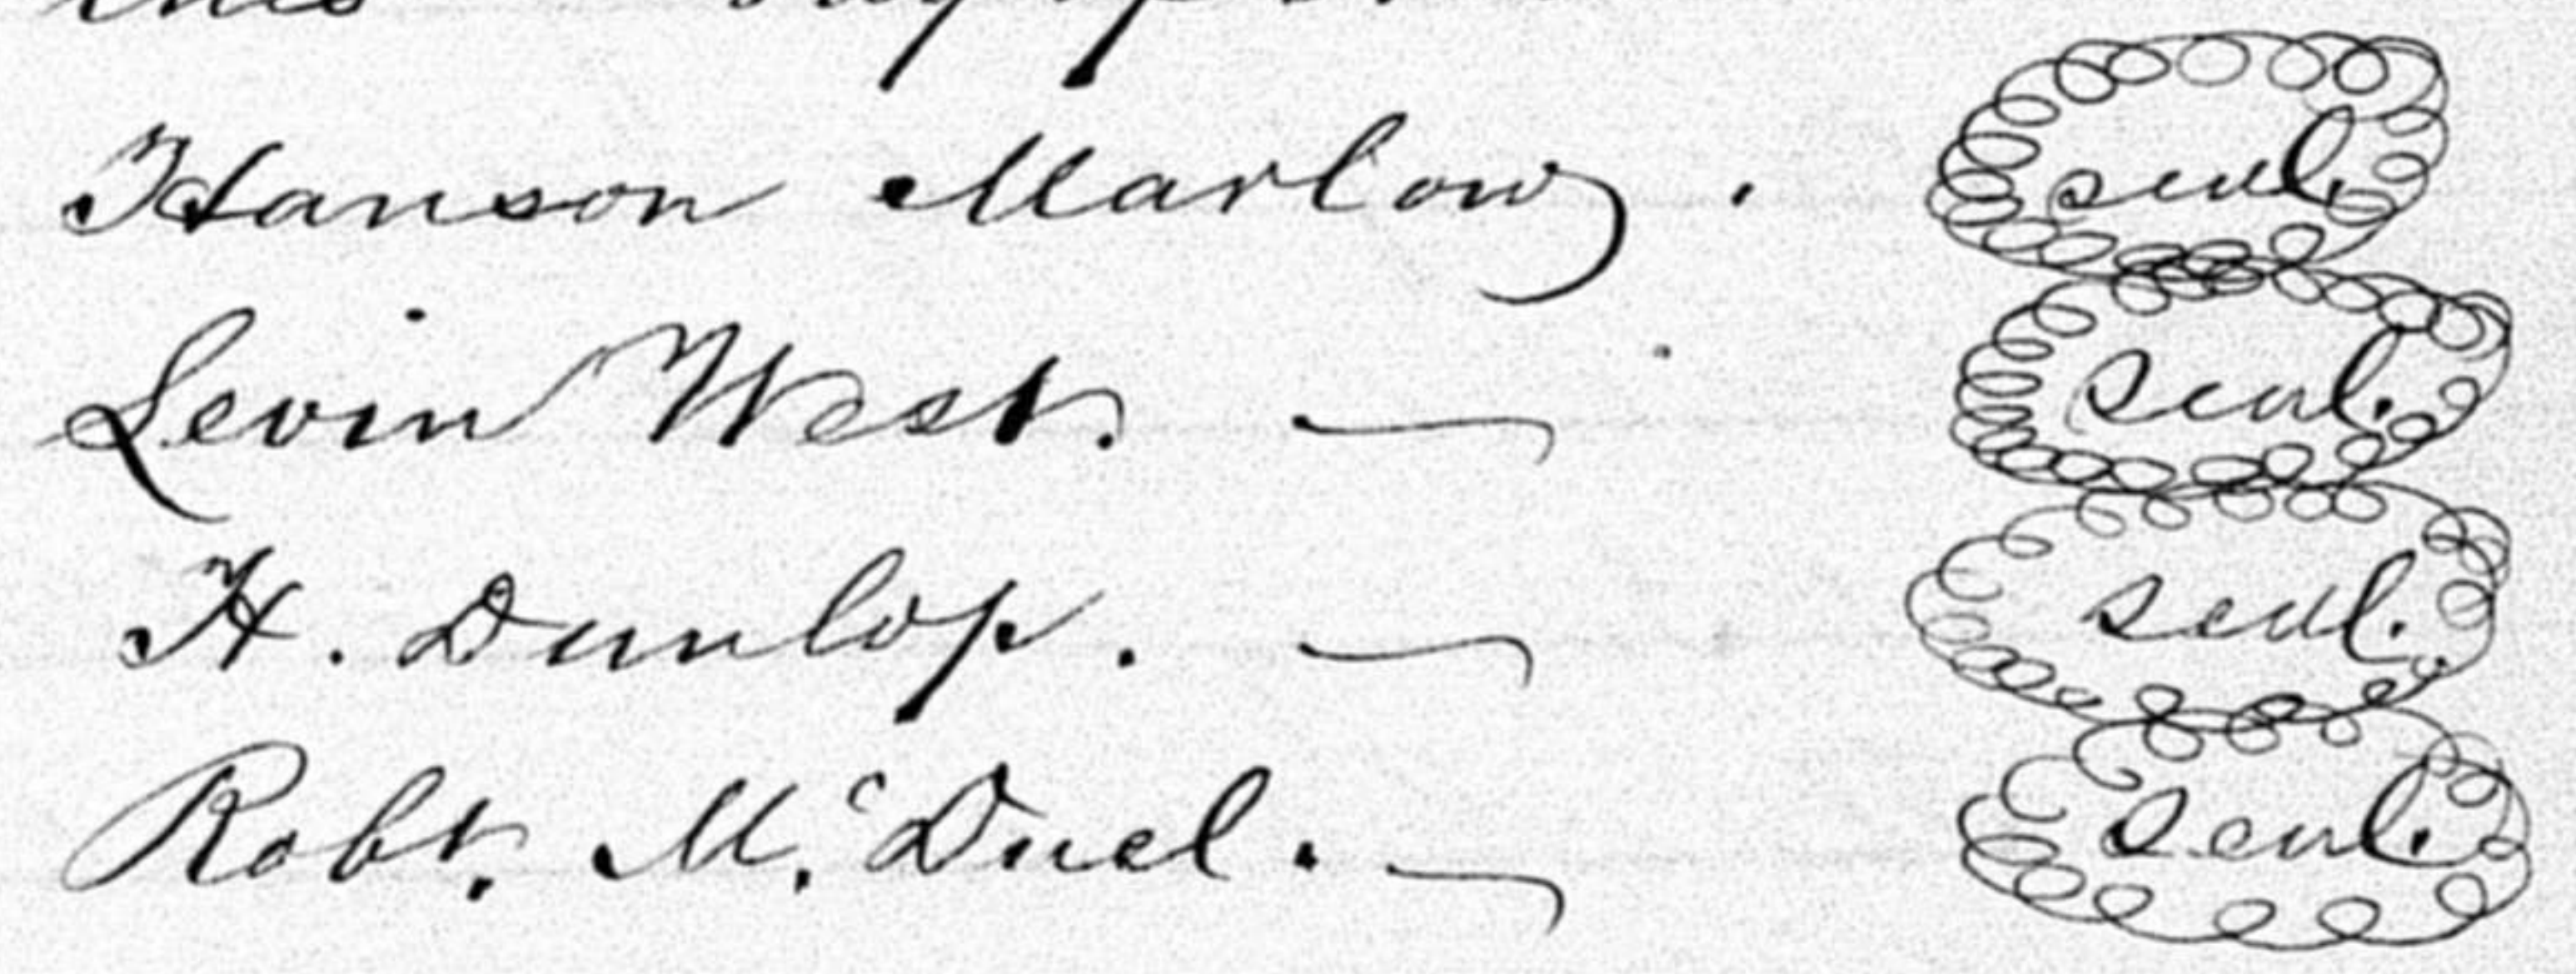 Hanson Marlow. seal.
Levin West. — seal.
H. Dunlop. — seal.
Robt. M.c Duel. — seal.